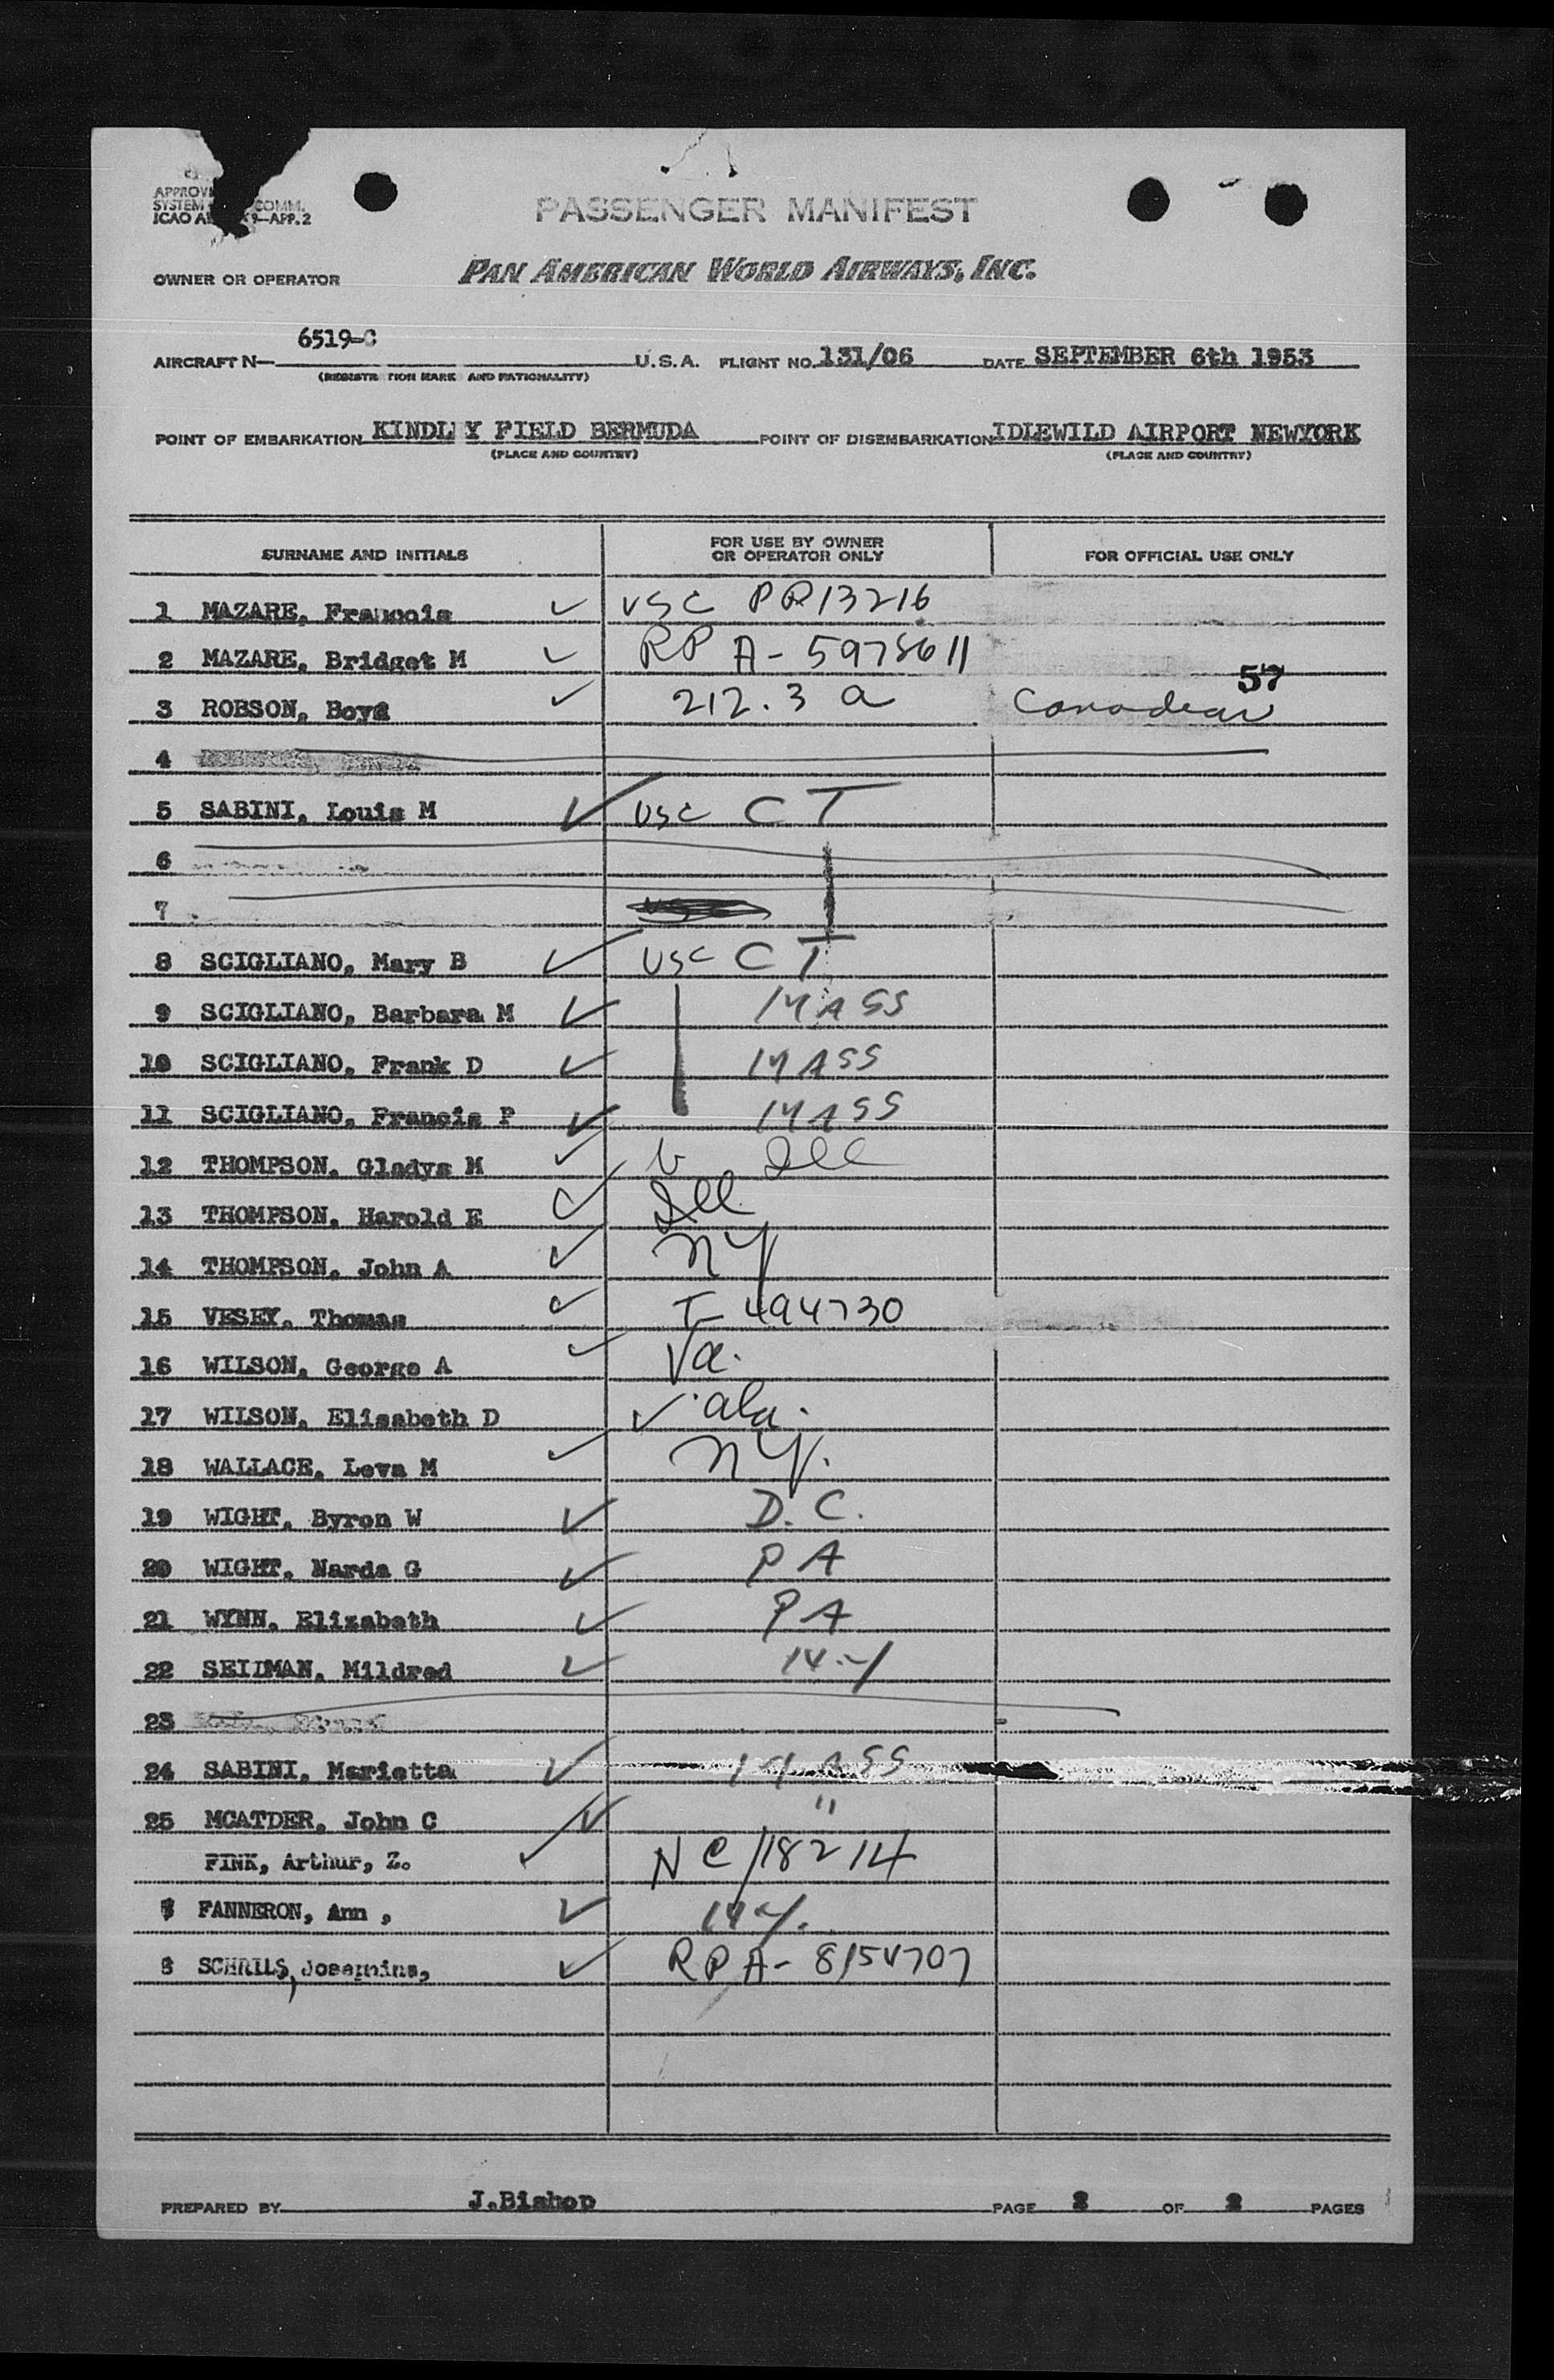 PASSENGER MANIFEST
OWNER OR OPERATOR PAN AMERICAN WORLD AIRWAYS, INC.
AIRCRAFT N— 6519-C U.S.A. FLIGHT NO. 131/06 DATE SEPTEMBER 6th 1953
POINT OF EMBARKATION KINDL Y FIELD BERMUDA POINT OF DISEMBARKATION IDLEWILD AIRPORT NEWYORK
(PLACE AND COUNTRY) (PLACE AND COUNTRY)
SURNAME AND INITIALS FOR USE BY OWNER OR OPERATOR ONLY FOR OFFICIAL USE ONLY
1 MAZARE, Francois ✓ USC PR13216
2 MAZARE, Bridget M ✓ RP A-5978611
57
3 ROBSON, Boyd ✓ 212.3 a Canadian
4
5 SABINI, Louis M ✓ USC CT
6
7
8 SCIGLIANO, Mary B ✓ USC CT
9 SCIGLIANO, Barbara M ✓ MASS
10 SCIGLIANO, Frank D ✓ MASS
11 SCIGLIANO, Francis P ✓ MASS
12 THOMPSON, Gladys M ✓ Ill
13 THOMPSON, Harold E ✓ Ill
14 THOMPSON, John A ✓ NY
15 VESEY, Thomas ✓ T-494730
16 WILSON, George A ✓ Va.
17 WILSON, Elisabeth D ✓ ala.
18 WALLACE, Leva M ✓ NY.
19 WIGHT, Byron W ✓ D.C.
20 WIGHT, Narda G ✓ PA
21 WYNN, Elizabeth ✓ PA
22 SEIDMAN, Mildred ✓ NY
23
24 SABINI, Marietta ✓ MASS
25 MCATDER, John C ✓ "
FINK, Arthur, Z. ✓ NC/18214
7 FANNERON, Ann , ✓ NY.
8 SCHRILS, Josephine, ✓ RP A-8154707
PREPARED BY J.Bishop PAGE 2 OF 2 PAGES